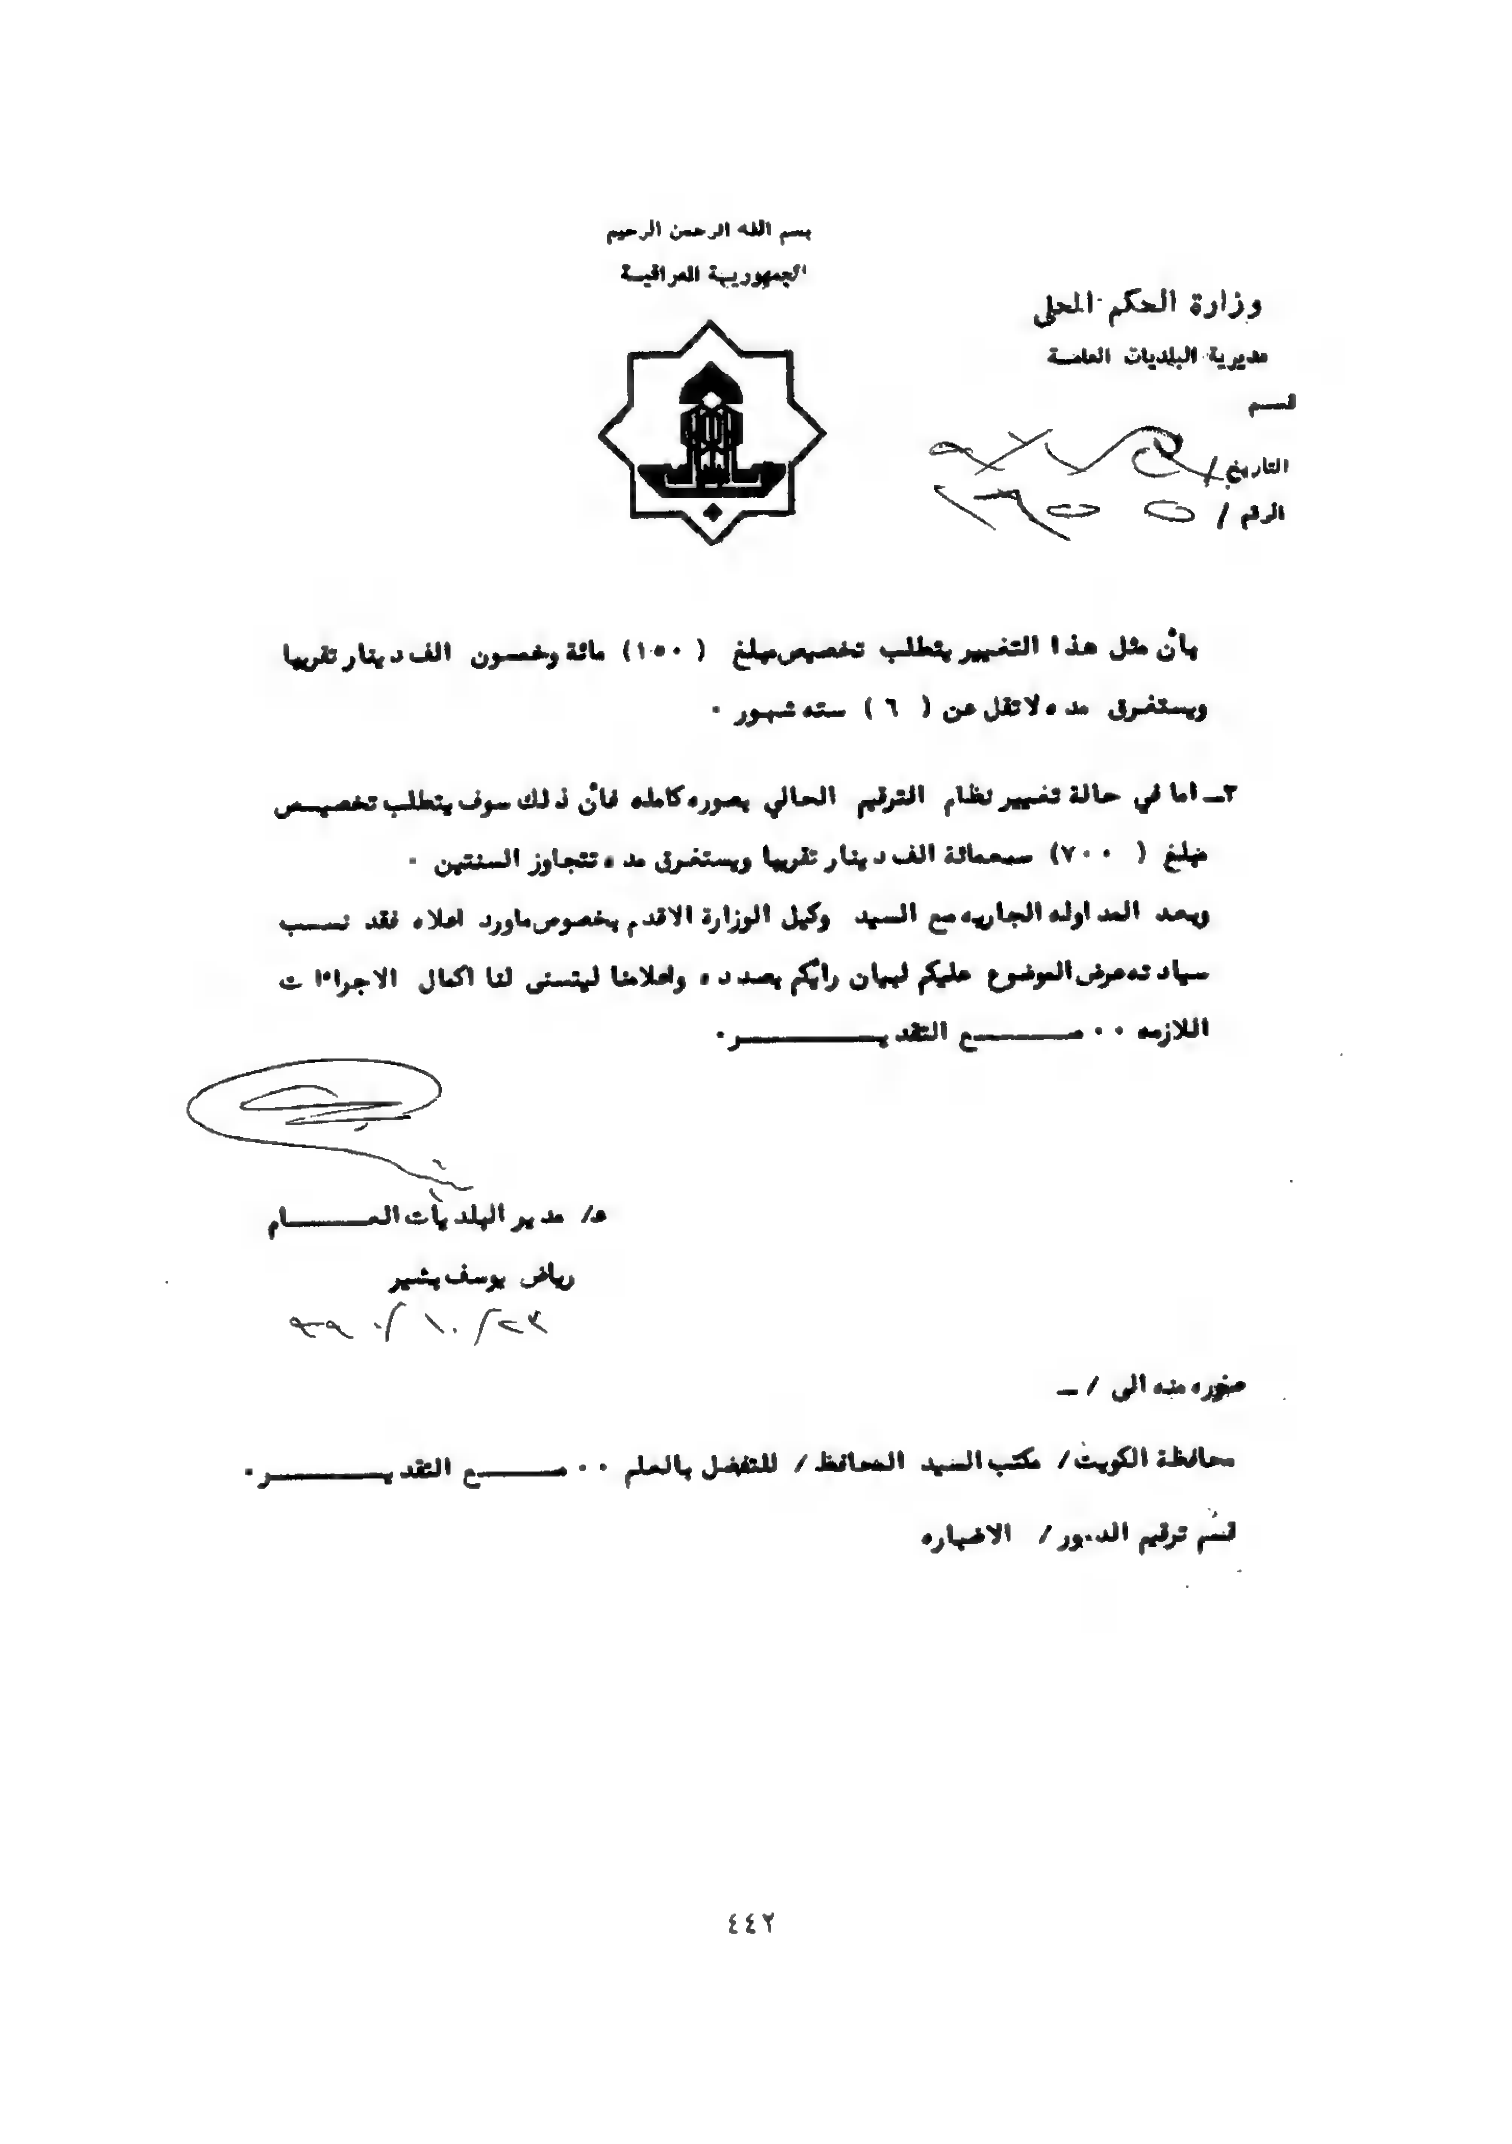 بسم الله الرحمن الرحيم
الجمهورية العراقية
وزارة الحكم المحلي
مديرية البلديات العامة
قسم
التاريخ /
الرقم /
بأن مثل هذا التغيير يتطلب تخصيص مبلغ ( ١٥٠ ) مائة وخمسون الف دينار تقريبا
ويستغرق مده لاتقل عن ( ٦ ) سته شهور ٠
٣ــ اما في حالة تغيير نظام الترقيم الحالي بصوره كامله فأن ذلك سوف يتطلب تخصيــص
مبلغ ( ٧٠٠ ) سبعمائة الف دينار تقريبا ويستغرق مده تتجاوز السنتين ٠
وبعد المداوله الجاريه مع السيد وكيل الوزارة الاقدم بخصوص ماورد اعلاه فقد نســب
سيادته عرض الموضوع عليكم لبيان رأيكم بصدده واعلامنا ليتسنى لنا اكمال الاجراءات
اللازمه ٠٠ مــــــع التقديــــــــر٠
ع/ مدير البلديات العـــــــام
رياض يوسف بشير
٢٣/ ١٠/ ٩٩٠
صوره منه الى / ــ
محافظة الكويت / مكتب السيد المحافظ / للتفضل بالعلم ٠٠ مــــــع التقديــــــــر٠
قسم ترقيم الدور / الاضباره
٤٤٢